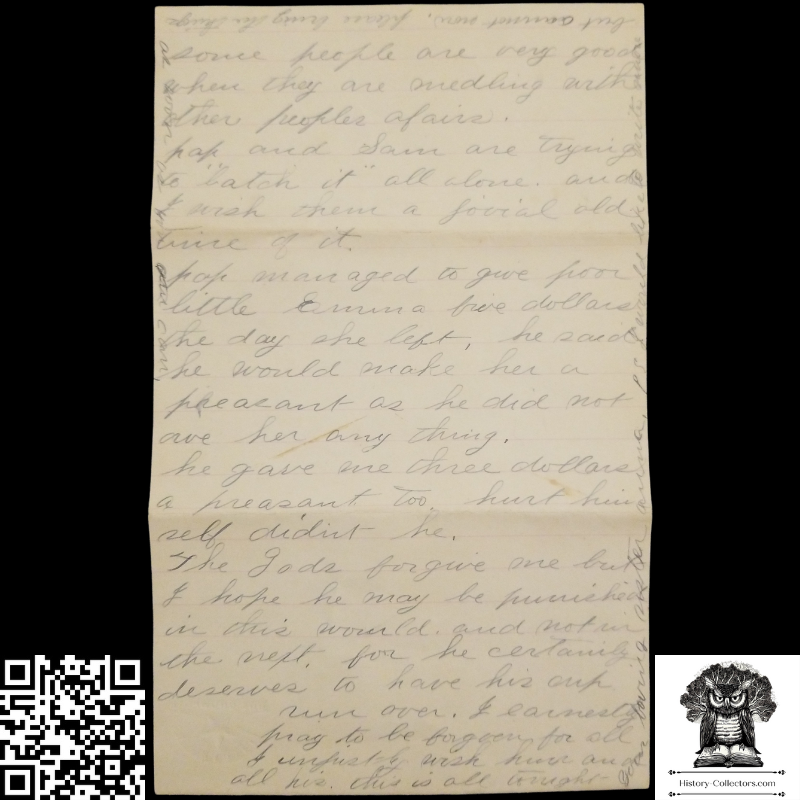 some people are very good
when they are medling with
other peoples afairs.
pap and Sam are trying
to "batch it" all alone. and
I wish them a jovial old
time of it.
pap managed to give poor
little Emma five dollars
the day she left, he said
he would make her a
preasant as he did not
owe her any thing.
he gave me three dollars
a preasant too, hurt him
self didint he.
The Gods forgive me but
I hope he may be punished
in this wourld. and not in
the next, for he certainly
deserves to have his cup
run over. I earnestly
pray to be forgiven for all
I wish him and
all his. this is all tonight
but cannot now, please bring the things
as soon as you can
your loving sister
History-Collectors.com